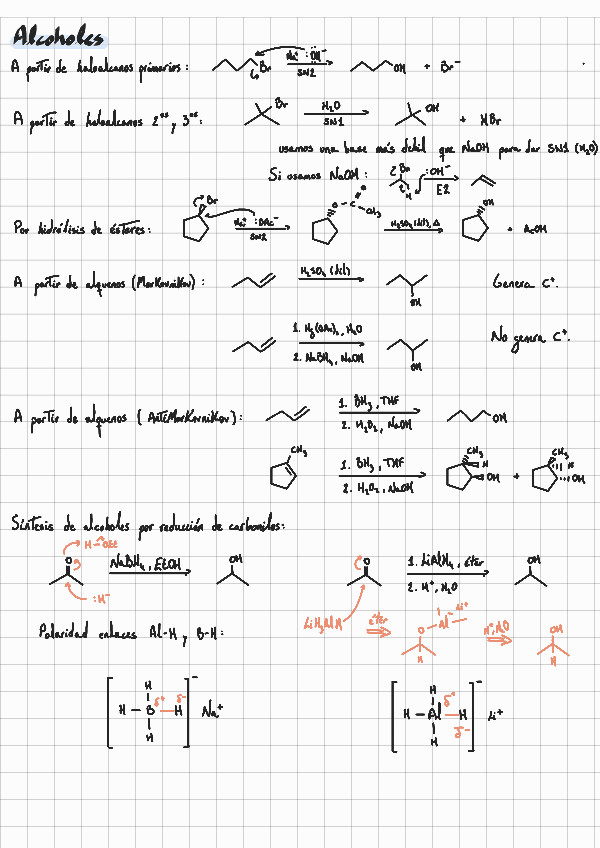 Alcoholes
A partir de haloalcanos primarios: Br Na⁺ :ÖH⁻ SN2 OH + Br⁻
A partir de haloalcanos 2ᵒˢ y 3ᵒˢ: Br H₂O SN1 OH + HBr
usamos una base más débil que NaOH para dar SN1 (H₂O)
Si usamos NaOH: Br H :OH⁻ E2
Por hidrólisis de ésteres: Br Na⁺ :OAc⁻ SN2 O C O CH₃ H₂SO₄ (dil), Δ OH + AcOH
A partir de alquenos (Markovnikov): H₂SO₄ (dil) OH Genera C⁺.
1. Hg(OAc)₂, H₂O
2. NaBH₄, NaOH OH No genera C⁺.
A partir de alquenos (AntiMarkovnikov): 1. BH₃, THF
2. H₂O₂, NaOH OH
CH₃ 1. BH₃, THF CH₃ H OH + CH₃ H OH
2. H₂O₂, NaOH
Síntesis de alcoholes por reducción de carbonilos:
O H-OEt :H⁻ NaBH₄, EtOH OH O 1. LiAlH₄, éter OH
2. H⁺, H₂O
LiH₃AlH éter O Al Li⁺ H H⁺, H₂O OH H
Polaridad enlaces Al-H y B-H:
H H B H H δ⁺ δ⁻ ⁻ Na⁺
H H Al H H δ⁺ δ⁻ ⁻ Li⁺